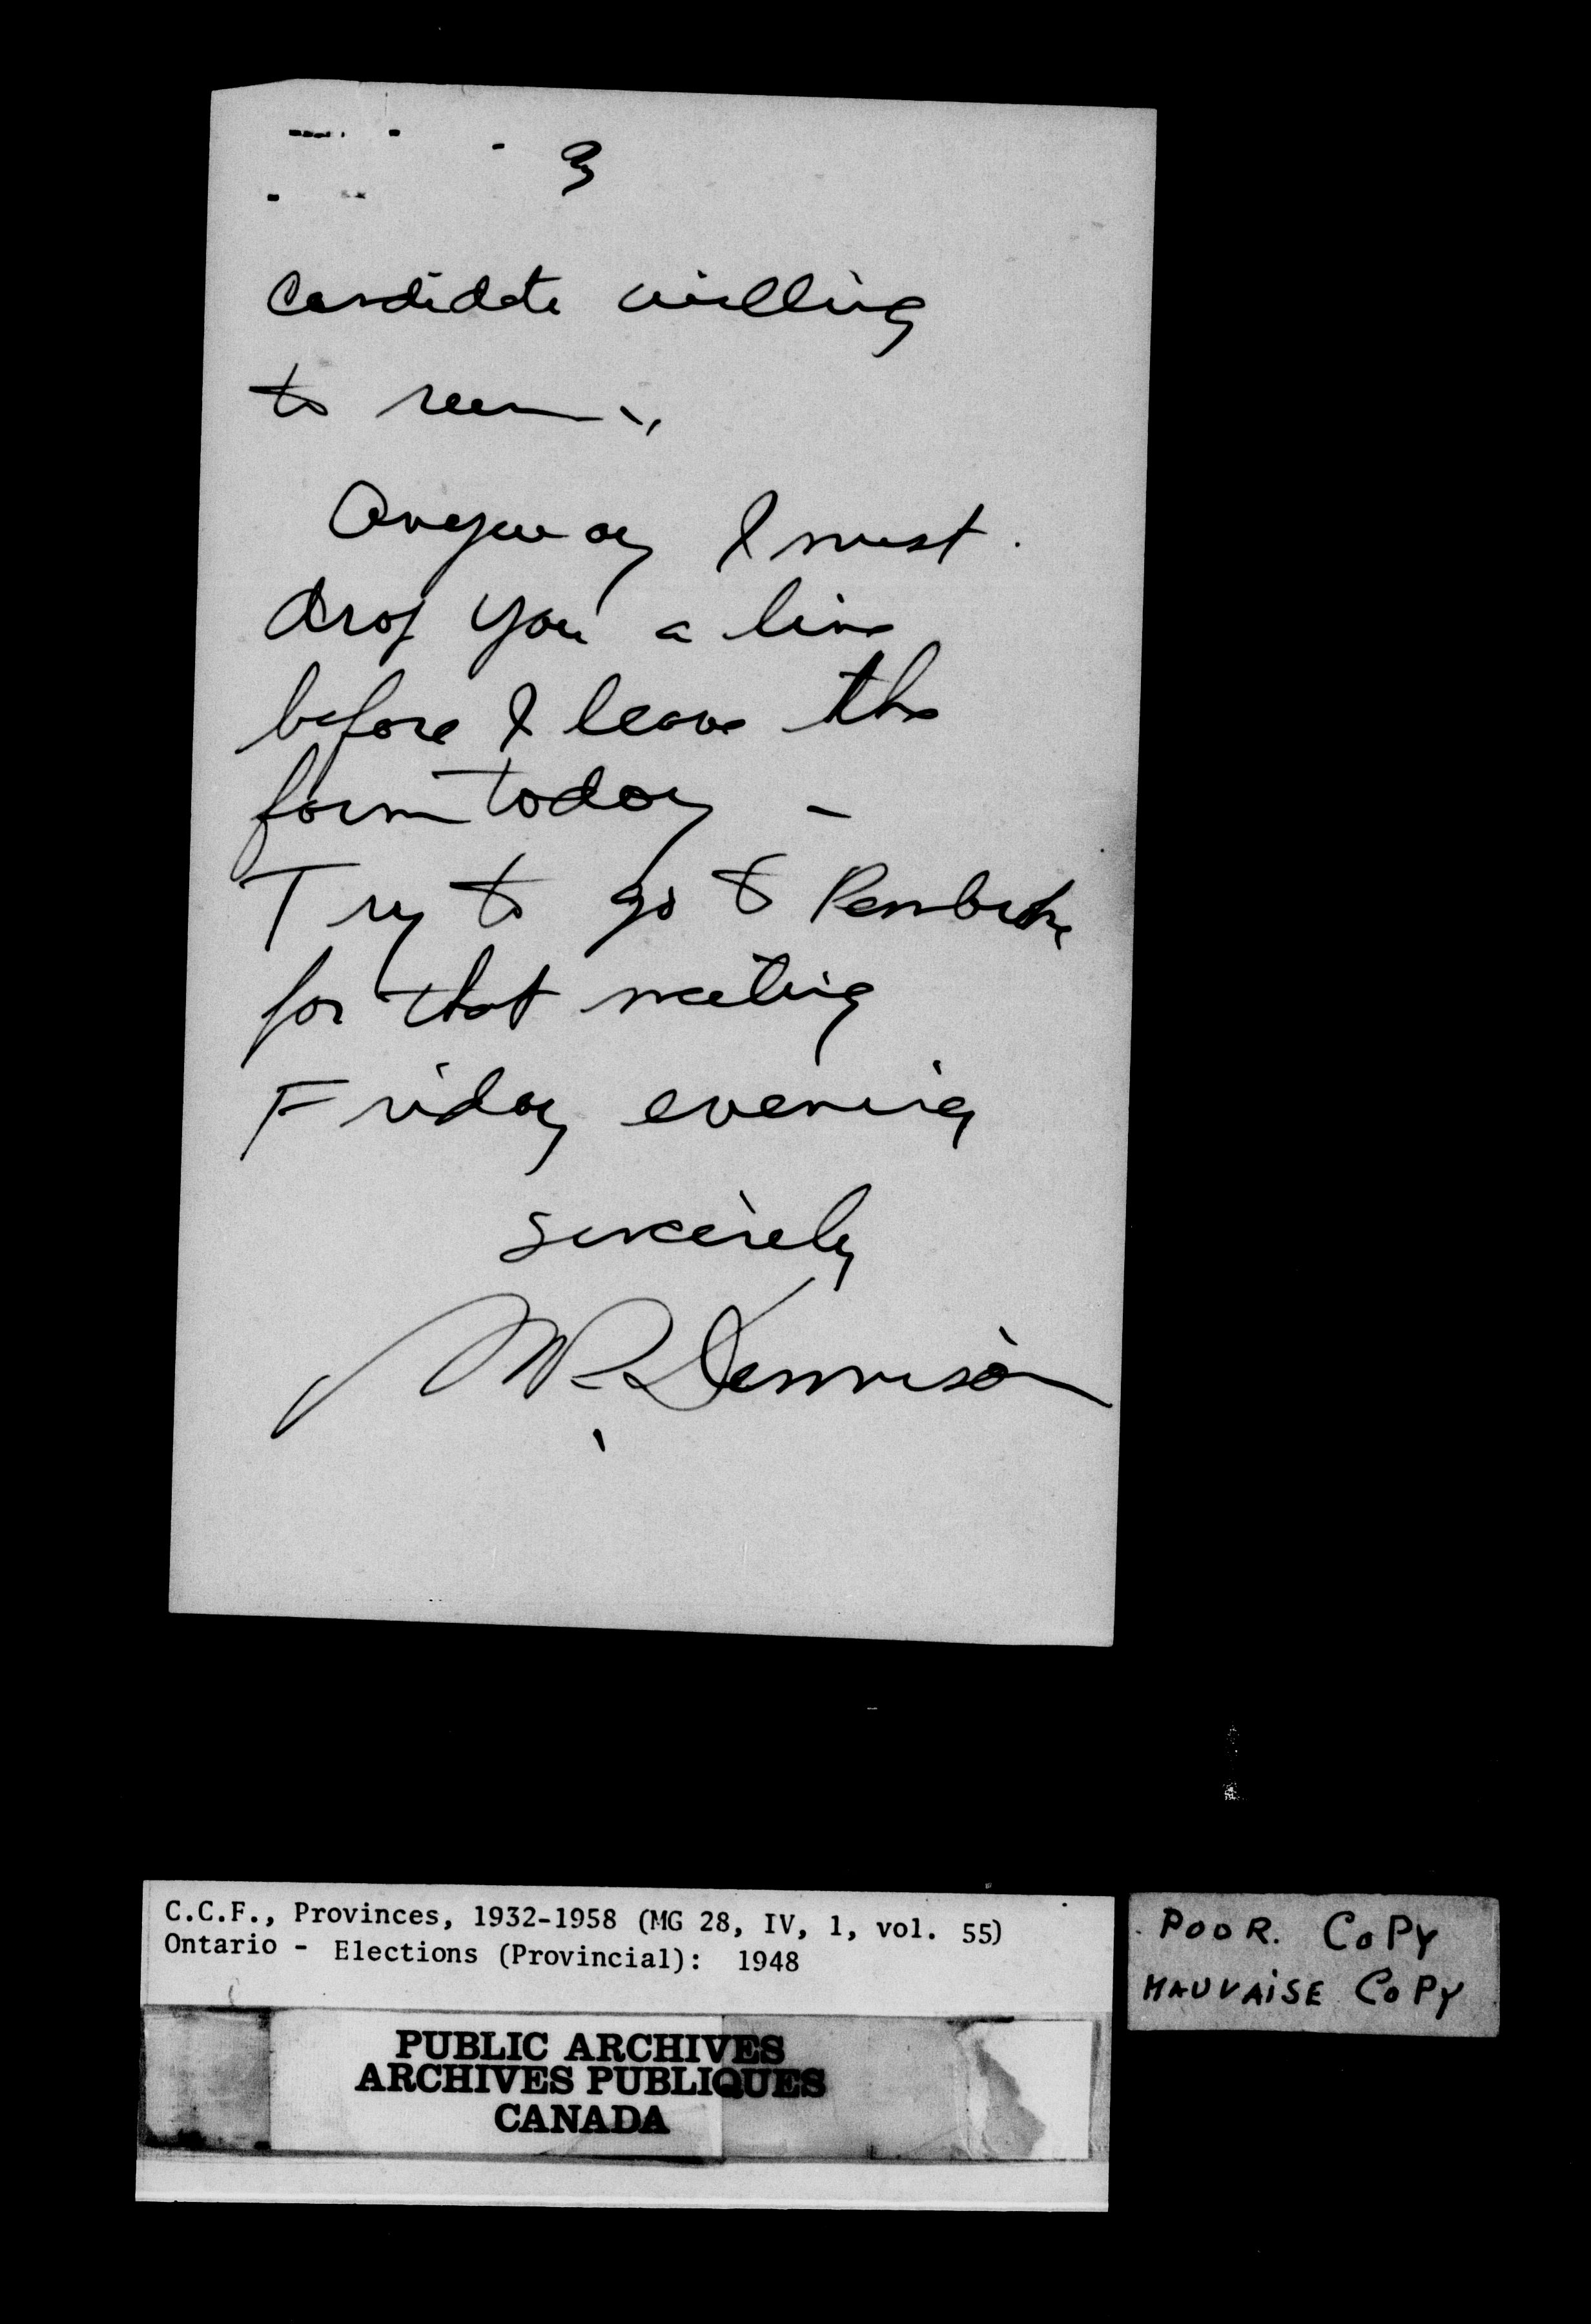 3
Candidate willing
to run.
Anyway I must
drop you a line
before I leave the
farm today -
Try to go to Pembroke
for that meeting
Friday evening
sincerely
W. Dennison
C.C.F., Provinces, 1932-1958 (MG 28, IV, 1, vol. 55)
Ontario - Elections (Provincial): 1948
POOR. COPY
MAUVAISE COPY
PUBLIC ARCHIVES
ARCHIVES PUBLIQUES
CANADA